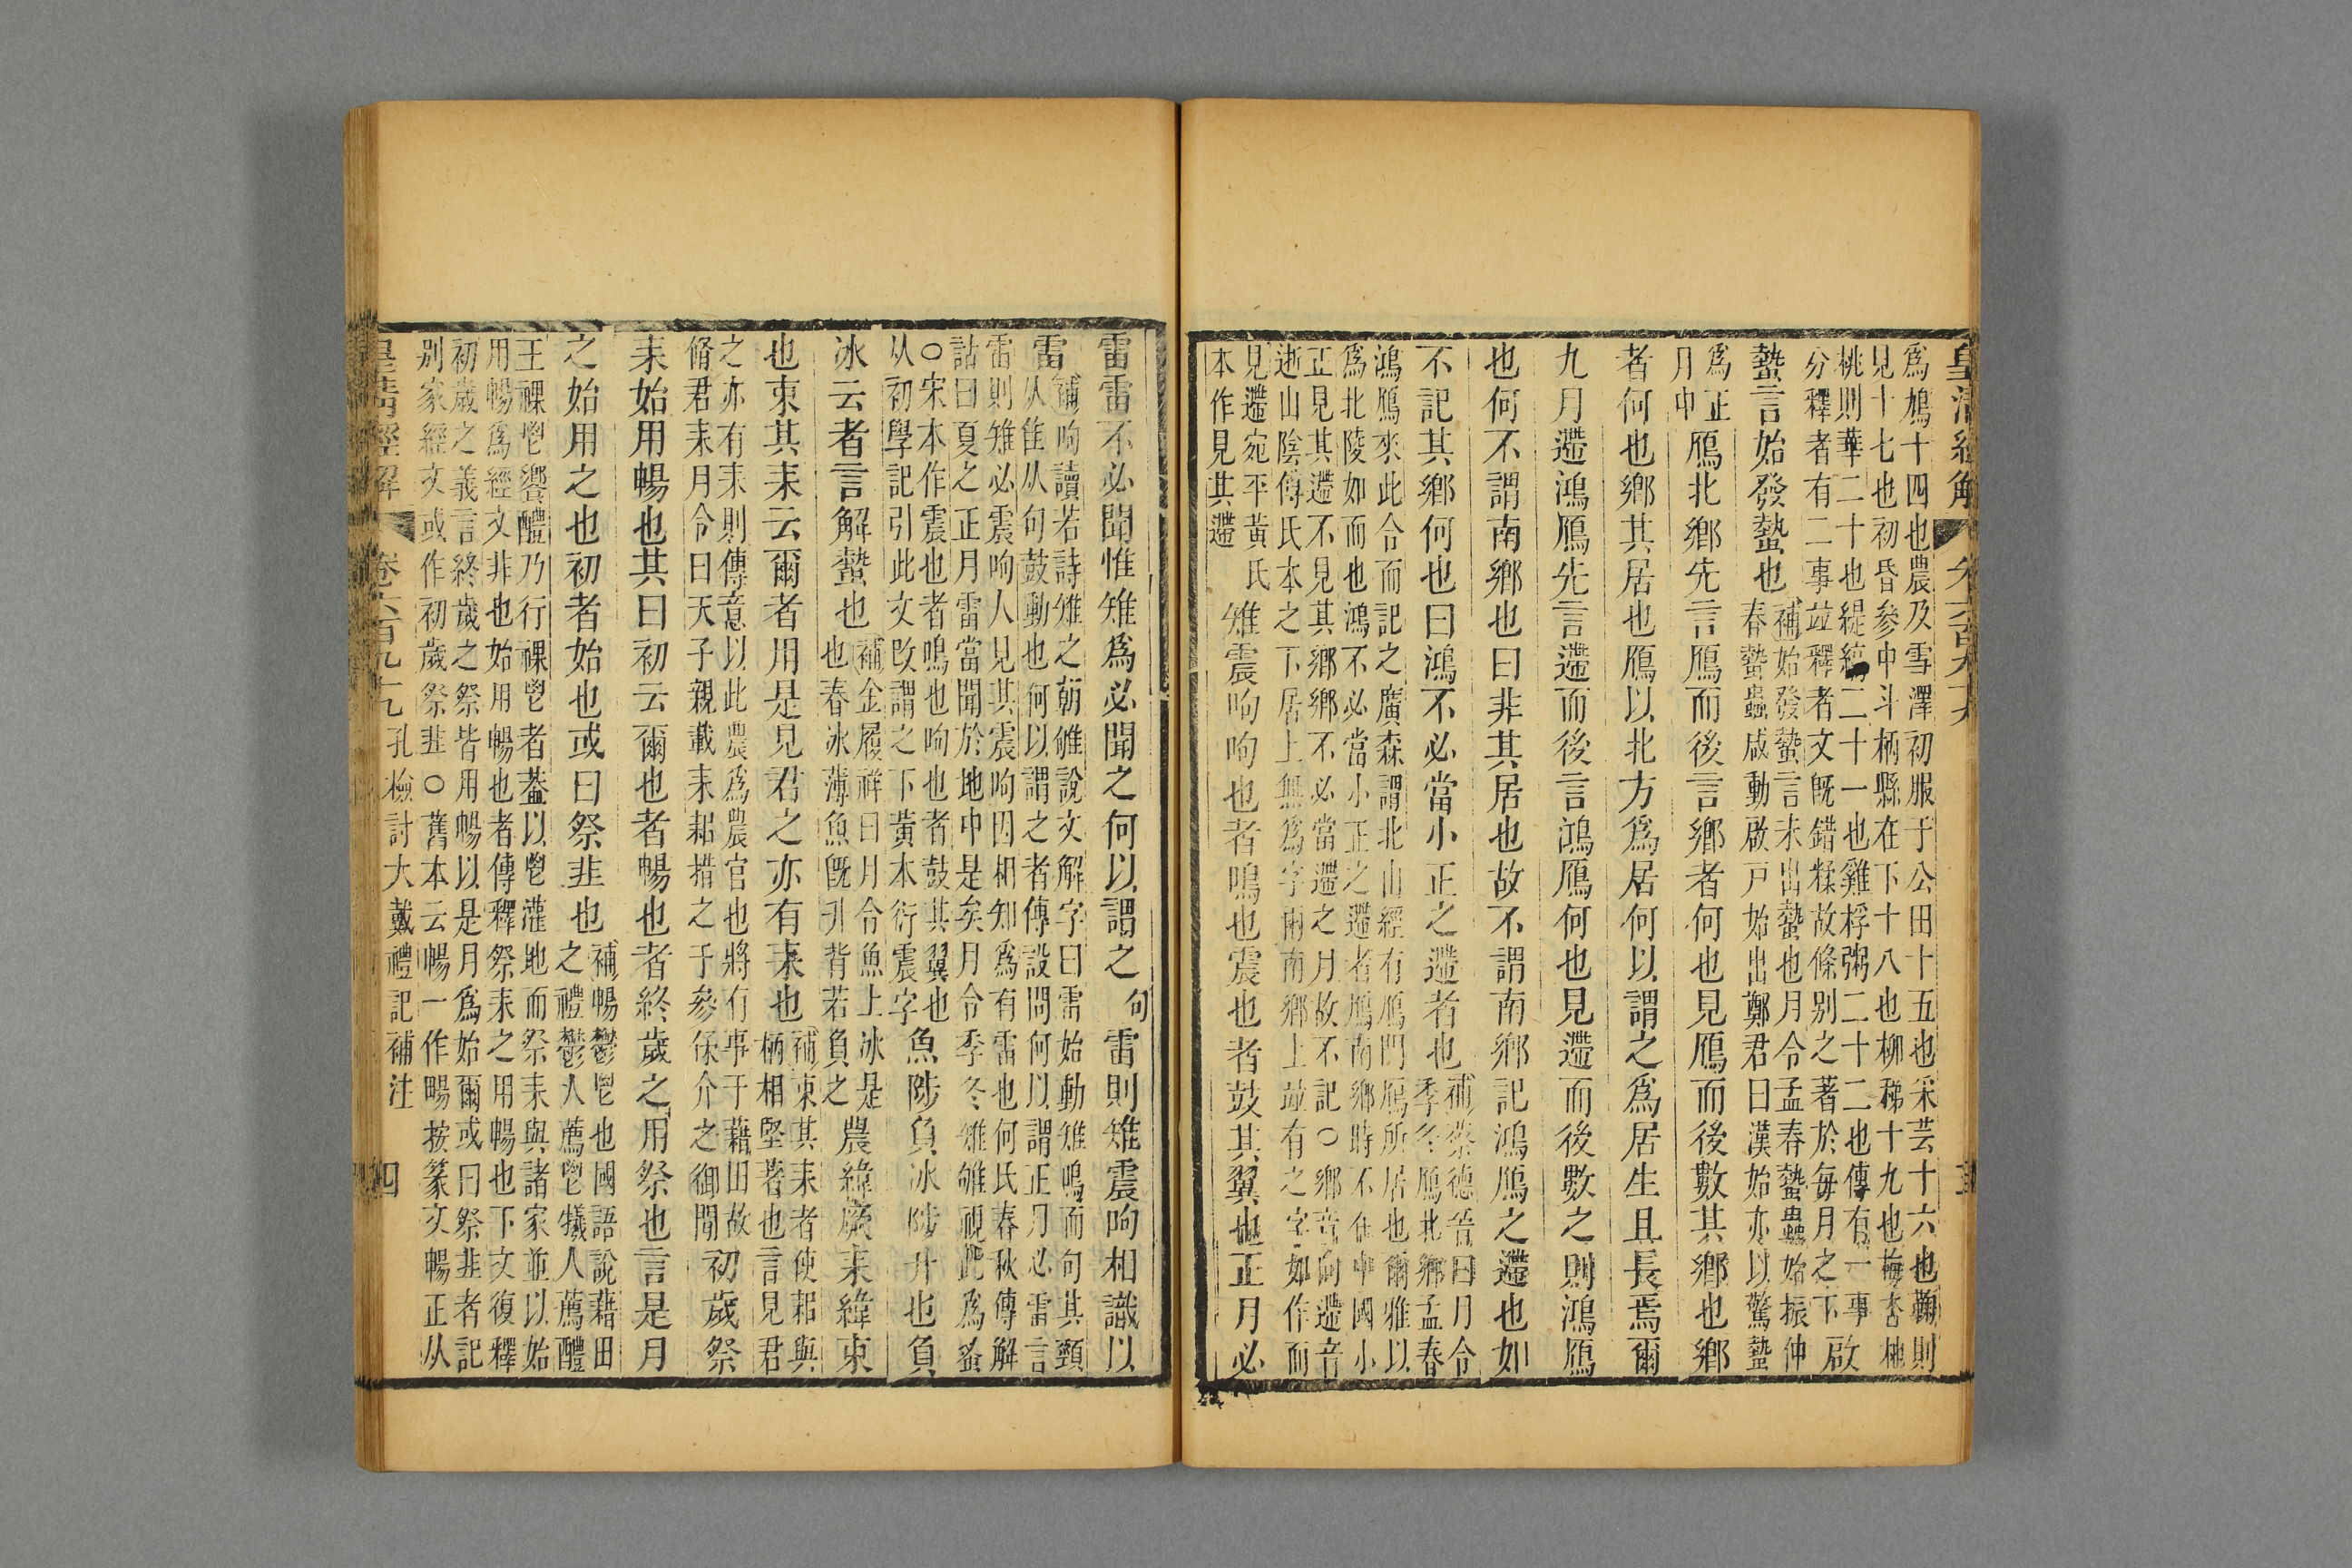 皇清經解
爲鳩十四也農及雪澤初服于公田十五也采芸十六也鞠則
見十七也初昏參中斗柄縣在下十八也柳稊十九也梅杏杝
桃則華二十也緹縞二十一也雞桴粥二十二也傳有一事
分釋者有二事竝釋者文旣錯糅故條別之著於每月之下
啟
蟄言始發蟄也
補始發蟄言未出蟄也月令孟春蟄蟲始振仲
春蟄蟲咸動啟戸始出鄭君曰漢始亦以驚蟄
爲正
月中
鴈北鄉先言鴈而後言鄉者何也見鴈而後數其鄉也鄉
者何也鄉其居也鴈以北方爲居何以謂之爲居生且長焉爾
九月遰鴻鴈先言遰而後言鴻鴈何也見遰而後數之則鴻鴈
也何不謂南鄉也曰非其居也故不謂南鄉記鴻鴈之遰也如
不記其鄉何也曰鴻不必當小正之遰者也
補蔡德晉曰月令
季冬鴈北鄉孟春
鴻鴈來此合而記之廣森謂北山經有鴈門鴈所居也爾雅以
爲北陵如而也鴻不必當小正之遰者鴈南鄉時不在中國小
正見其遰不見其鄉鄉不必當遰之月故不記○鄉音向遰音
逝山陰傅氏本之下居上無爲字南鄉上竝有之字如作而
見遰宛平黃氏
本作見其遰
雉震呴呴也者鳴也震也者鼓其翼也正月必
雷雷不必聞惟雉爲必聞之何以謂之
句
雷則雉震呴相識以
雷
補呴讀若詩雉之朝雊說文解字曰雷始動雉鳴而句其頸
从隹从句鼓動也何以謂之者傳設問何以謂正月必雷言
雷則雉必震呴人見其震呴因相知爲有雷也何氏春秋傳解
詁曰夏之正月雷當聞於地中是矣月令季冬雉雊視此爲蚤
○宋本作震也者鳴也呴也者鼓其翼也
从初學記引此文改謂之下黃本衍震字
魚陟負冰陟升也負
冰云者言解蟄也
補金履祥曰月令魚上冰是
也春冰薄魚旣升背若負之
農緯厥耒緯束
也束其耒云爾者用是見君之亦有耒也
補束其耒者使耜與
柄相堅著也言見君
之亦有耒則傳意以此農爲農官也將有事于藉田故
脩君耒月令曰天子親載耒耜措之于參保介之御閒
初歲祭
耒始用暢也其曰初云爾也者暢也者終歲之用祭也言是月
之始用之也初者始也或曰祭韭也
補暢鬱鬯也國語說藉田
之禮鬱人薦鬯犧人薦醴
王祼鬯饗醴乃行祼鬯者葢以鬯灌地而祭耒與諸家並以始
用暢爲經文非也始用暢也者傳釋祭耒之用暢也下文復釋
初歲之義言終歲之祭皆用暢以是月爲始爾或曰祭韭者記
別家經文或作初歲祭韭○舊本云暢一作畼按篆文暢正从
皇清經解
卷六百九十九
孔檢討大戴禮記補注
四